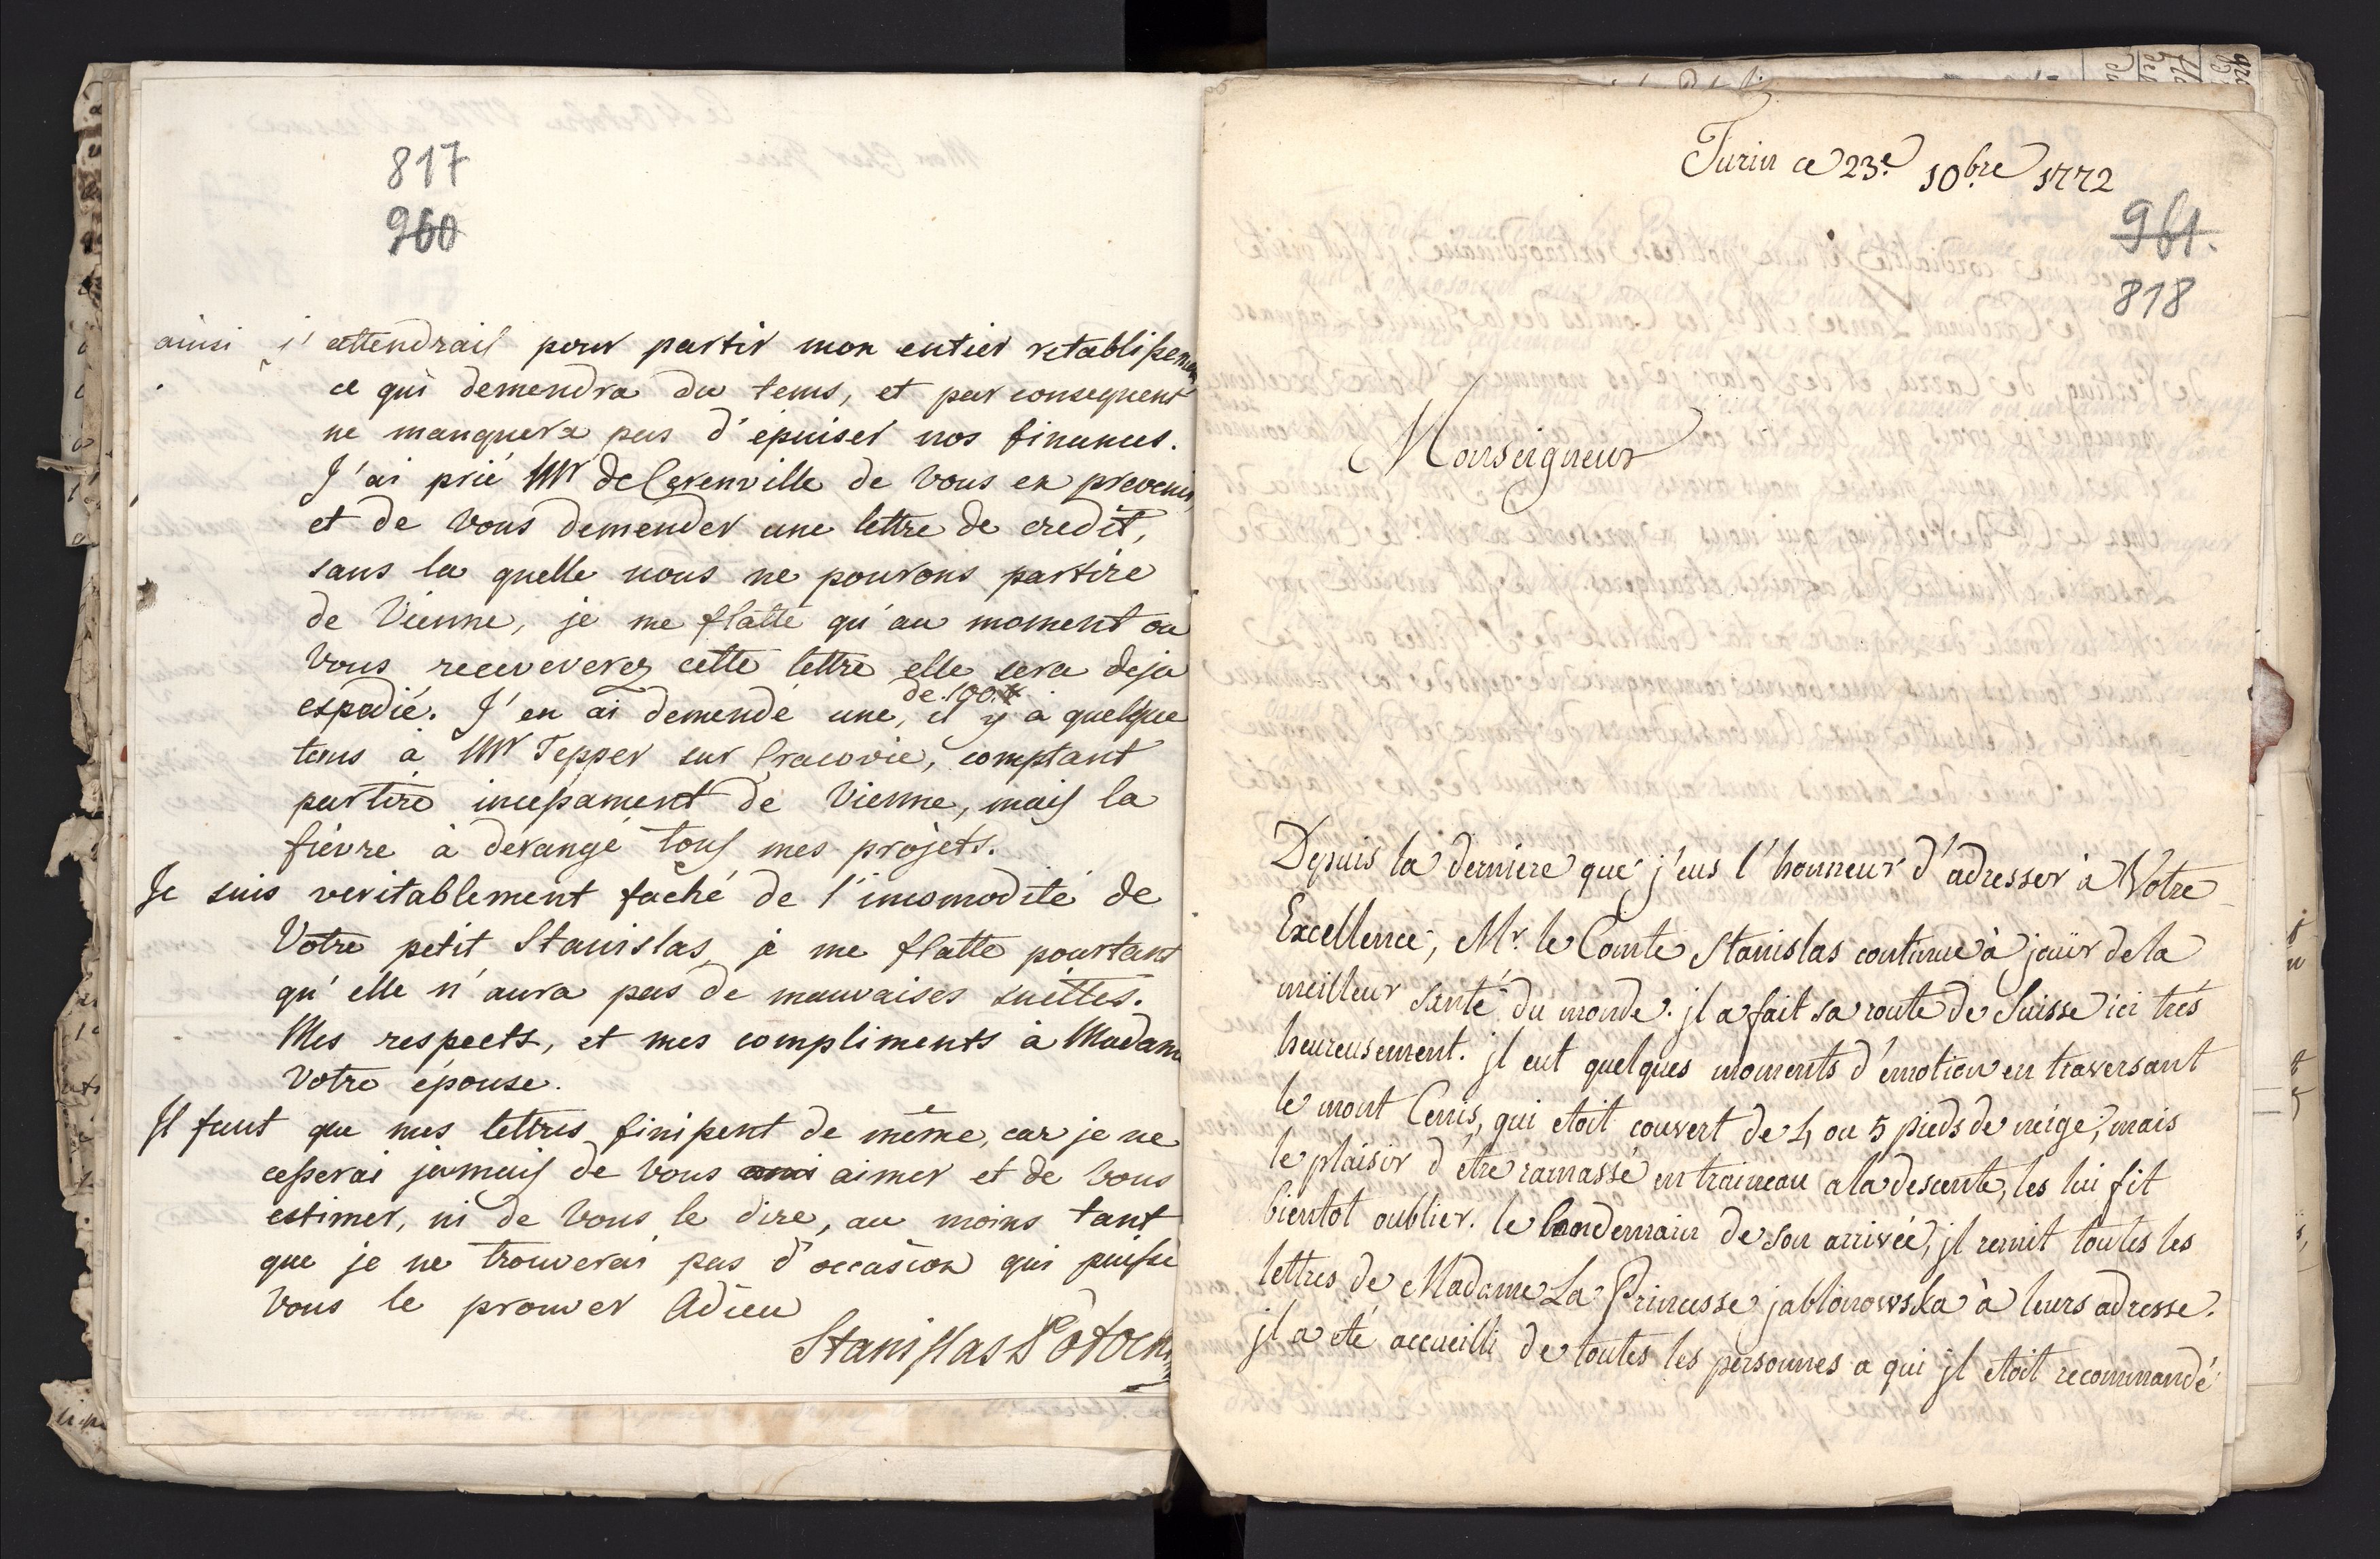 817
960
ainsi j'attendrais pour partir mon entier retablissemen
ce qui demendra du tems, et par consequent
ne manquera pas d'épuiser nos finances.
J'ai prié Mr de Cerenville de vous en prevenir,
et de vous demender une lettre de credit,
sans la quelle nous ne pourons partire
de Vienne, je me flatte qu'au moment ou
vous recevererez cette lettre elle sera deja
expedié. J'en ai demendé une, il y à quelque
de 100#
tems à Mr Tepper sur Cracovie, comptant
partire incessament de Vienne, mais la
fièvre à derangé tous mes projets.
Je suis veritablement faché de l'incomodité de
Votre petit Stanislas, je me flatte pourtant
qu'elle n'aura pas de mauvaises suittes.
Mes respects, et mes compliments à Madam
Votre épouse.
Il faut que mes lettres finissent de même, car je ne
cesserai jamais de vous aimer et de vous
estimer, ni de vous le dire, au moins tant
que je ne trouverai pas d'occasion qui puisse
vous le prouver Adieu
Stanislas Potocki
Turin ce 23e. 10bre 1772
961.
818
Monseigneur
Depuis la derniere que j'eus l'honneur d'adresser à Votre
Excellence, Mr. le Comte Stanislas continue à jouïr de la
meilleur santé du monde. jl a fait sa route de Suisse ici trés
heureusement. jl eut quelques moments d'émotion en traversant
le mont Cenis, qui etoit couvert de 4 ou 5 pieds de neige, mais
le plaisir d'être ramassé en traineau a la descente, les lui fit
bientot oublier. le landemain de son arrivée, jl remit toutes les
lettres de Madame La Princesse jablonowska à leurs adresse.
jl a eté accueilli de toutes les personnes a qui jl etoit recommandé